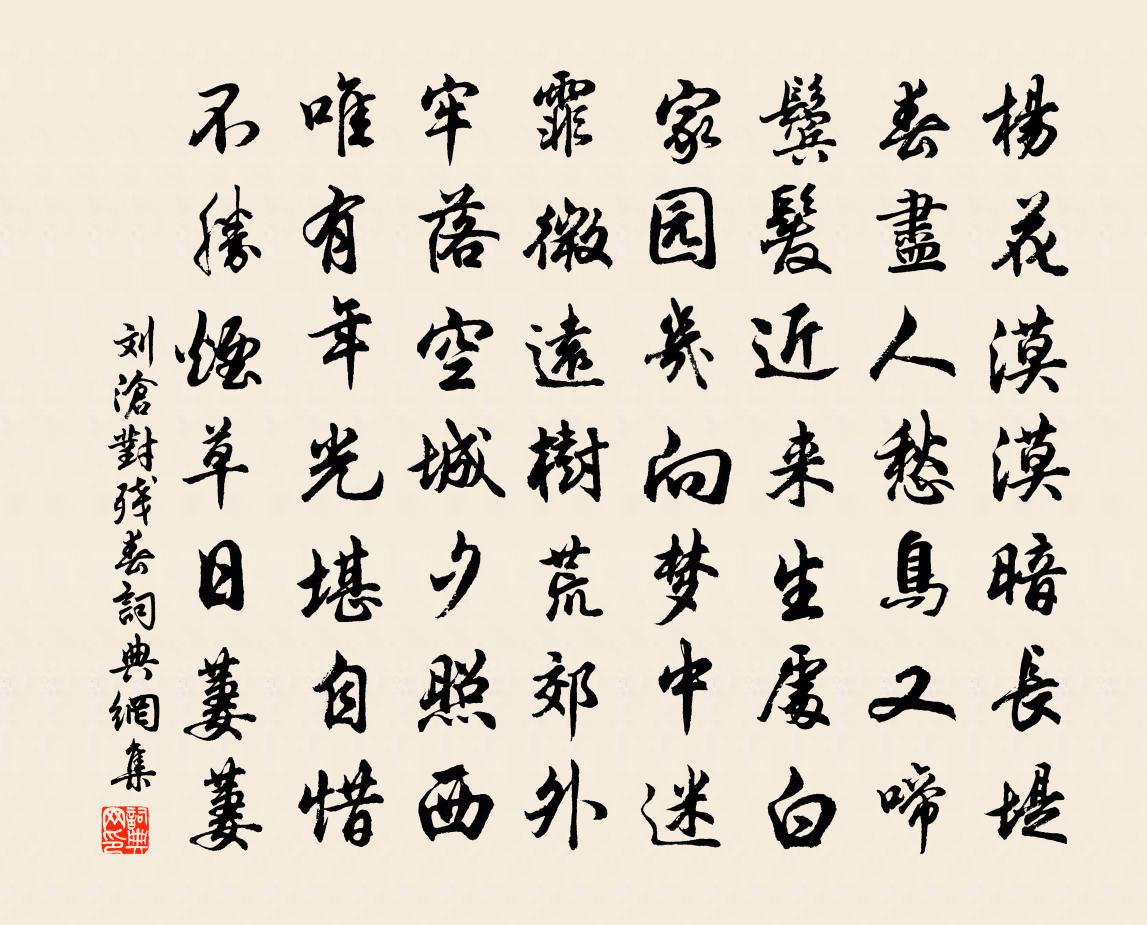 楊花漠漠暗長堤
春盡人愁鳥又啼
鬢髮近来生處白
家园幾向梦中迷
霏微遠樹荒郊外
牢落空城夕照西
唯有年光堪自惜
不勝煙草日萋萋
刘滄對残春詞典網集
詞典
网印